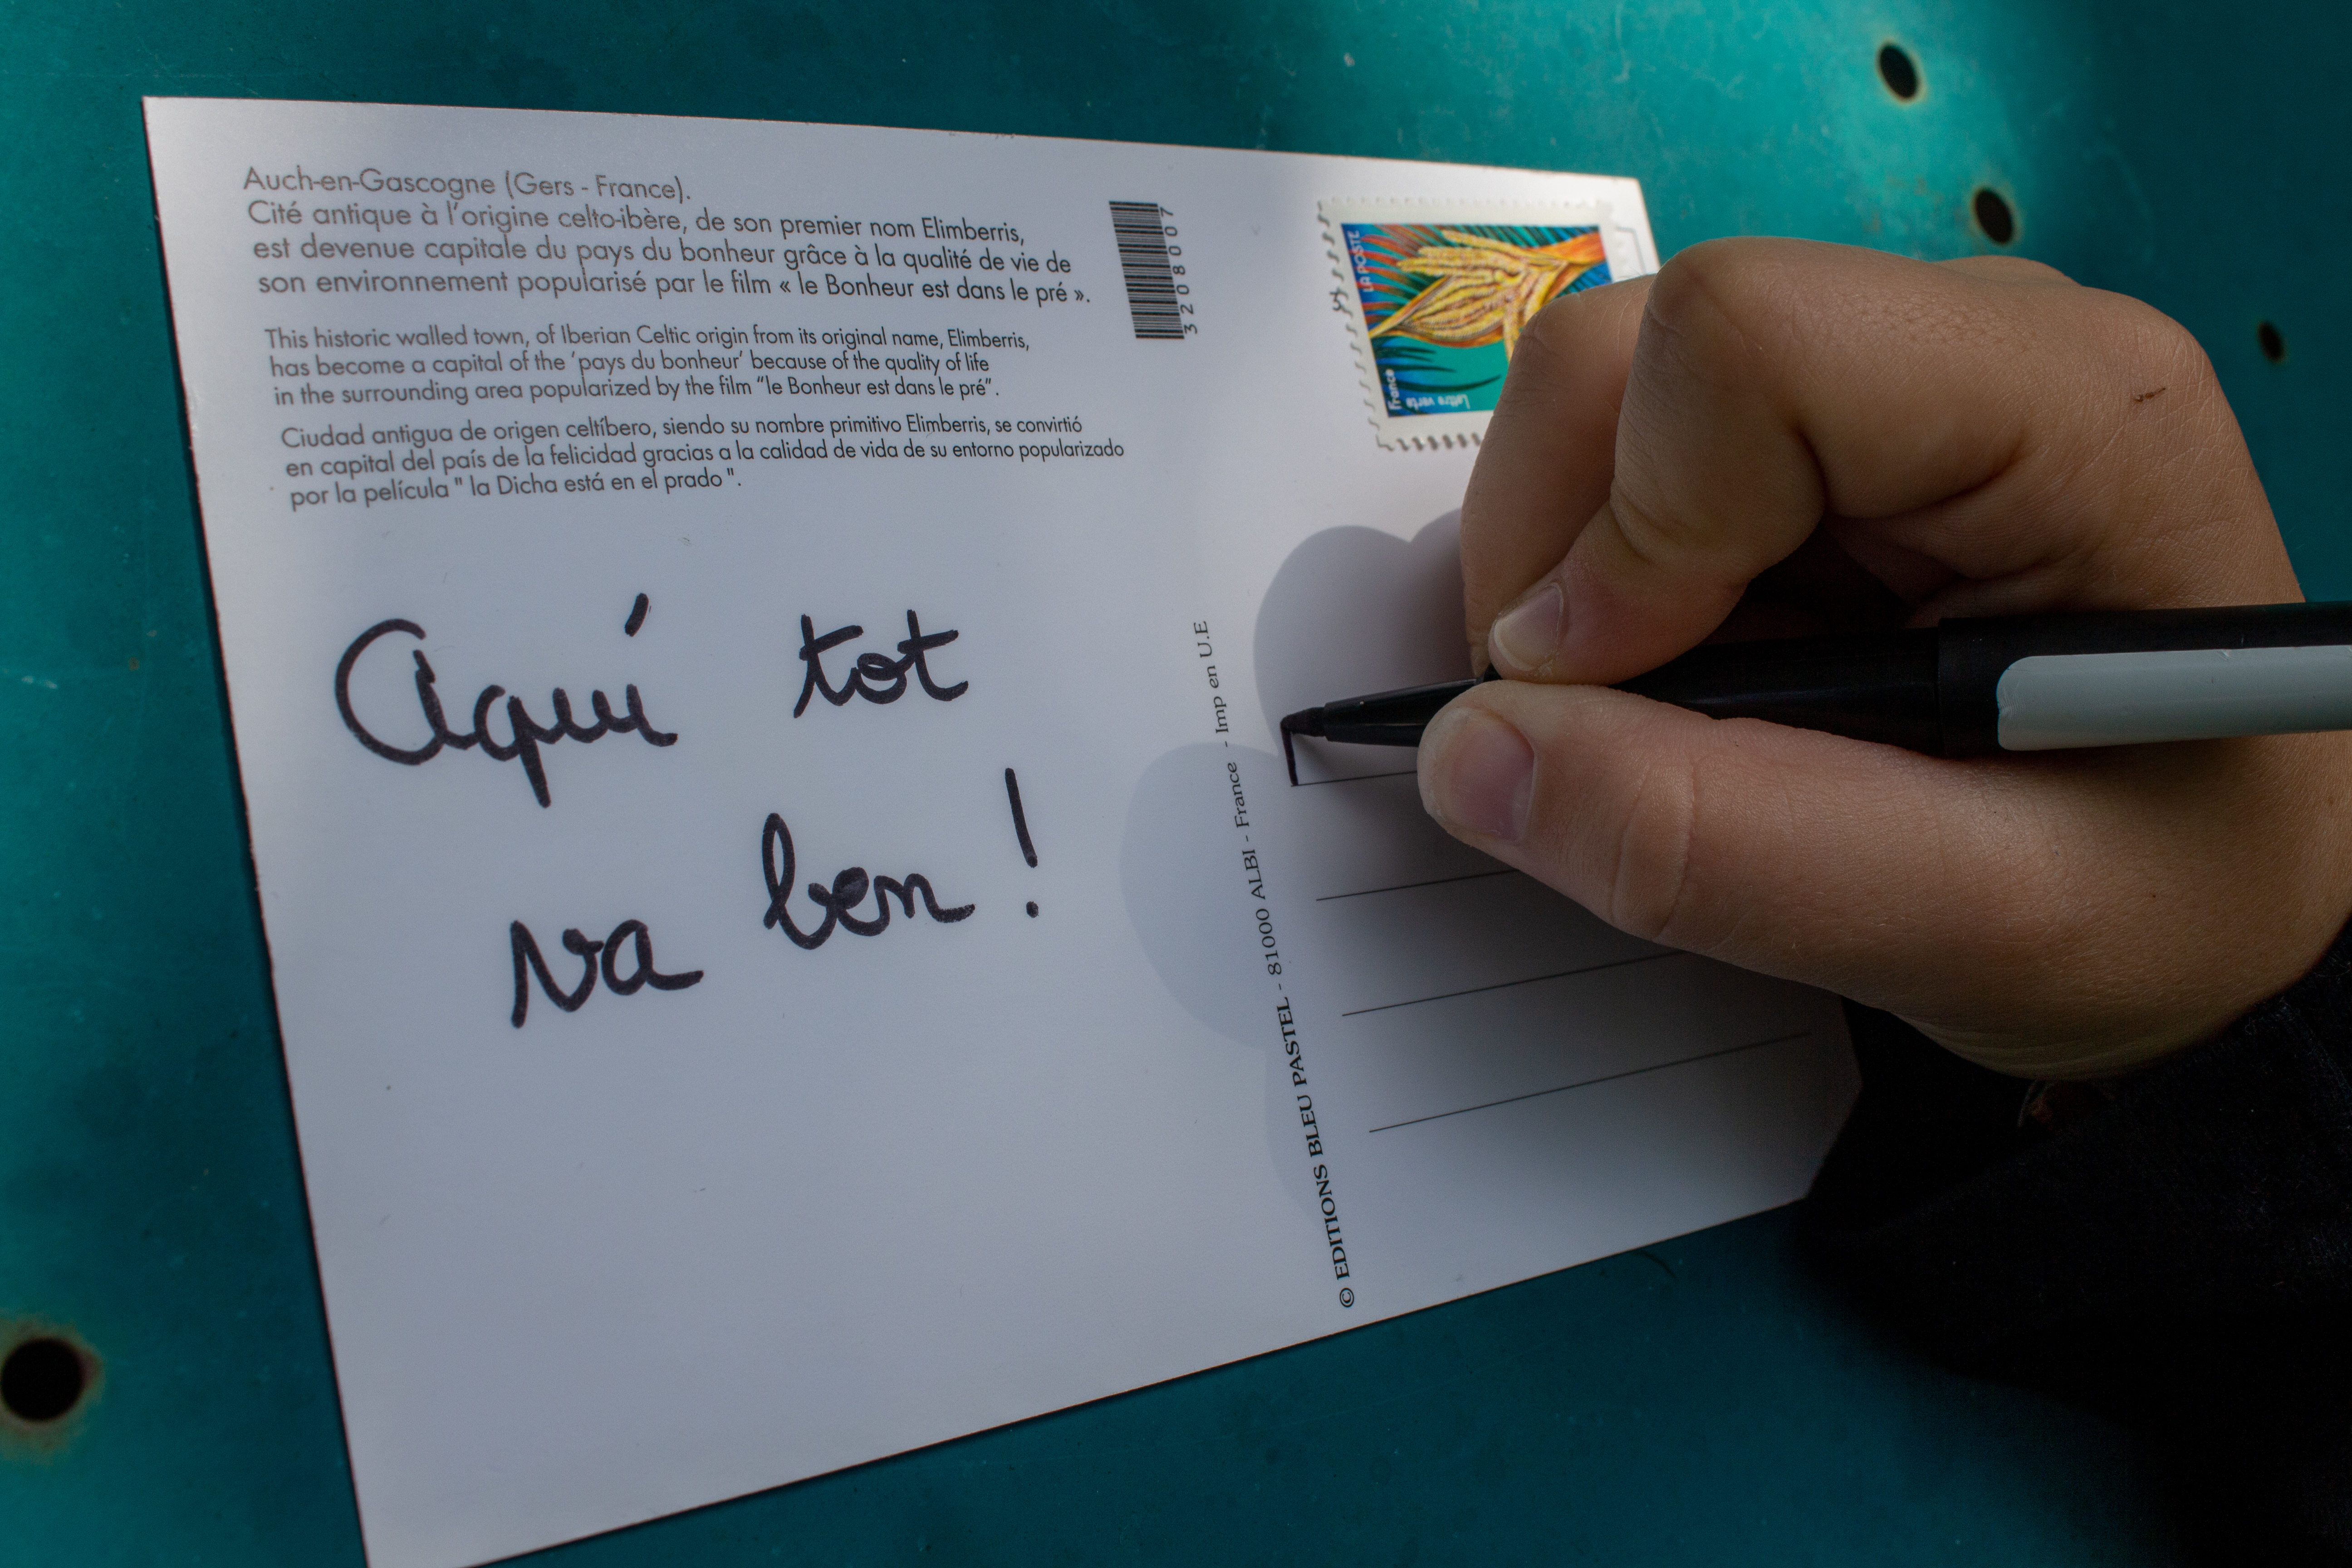 Auch-en-Gascogne (Gers - France).
Cité antique à l'origine celto-ibère, de son premier nom Elimberris,
est devenue capitale du pays du bonheur grâce à la qualité de vie de
son environnement popularisé par le film « le Bonheur est dans le pré ».
This historic walled town, of Iberian Celtic origin from its original name, Elimberris,
has become a capital of the 'pays du bonheur' because of the quality of life
in the surrounding area popularized by the film "le Bonheur est dans le pré".
Ciudad antigua de origen celtíbero, siendo su nombre primitivo Elimberris, se convirtió
en capital del país de la felicidad gracias a la calidad de vida de su entorno popularizado
por la película " la Dicha está en el prado ".
3208007
LA POSTE
France
Lettre verte
Aquí tot
va ben !
© EDITIONS BLEU PASTEL - 81000 ALBI - France - Imp en U.E